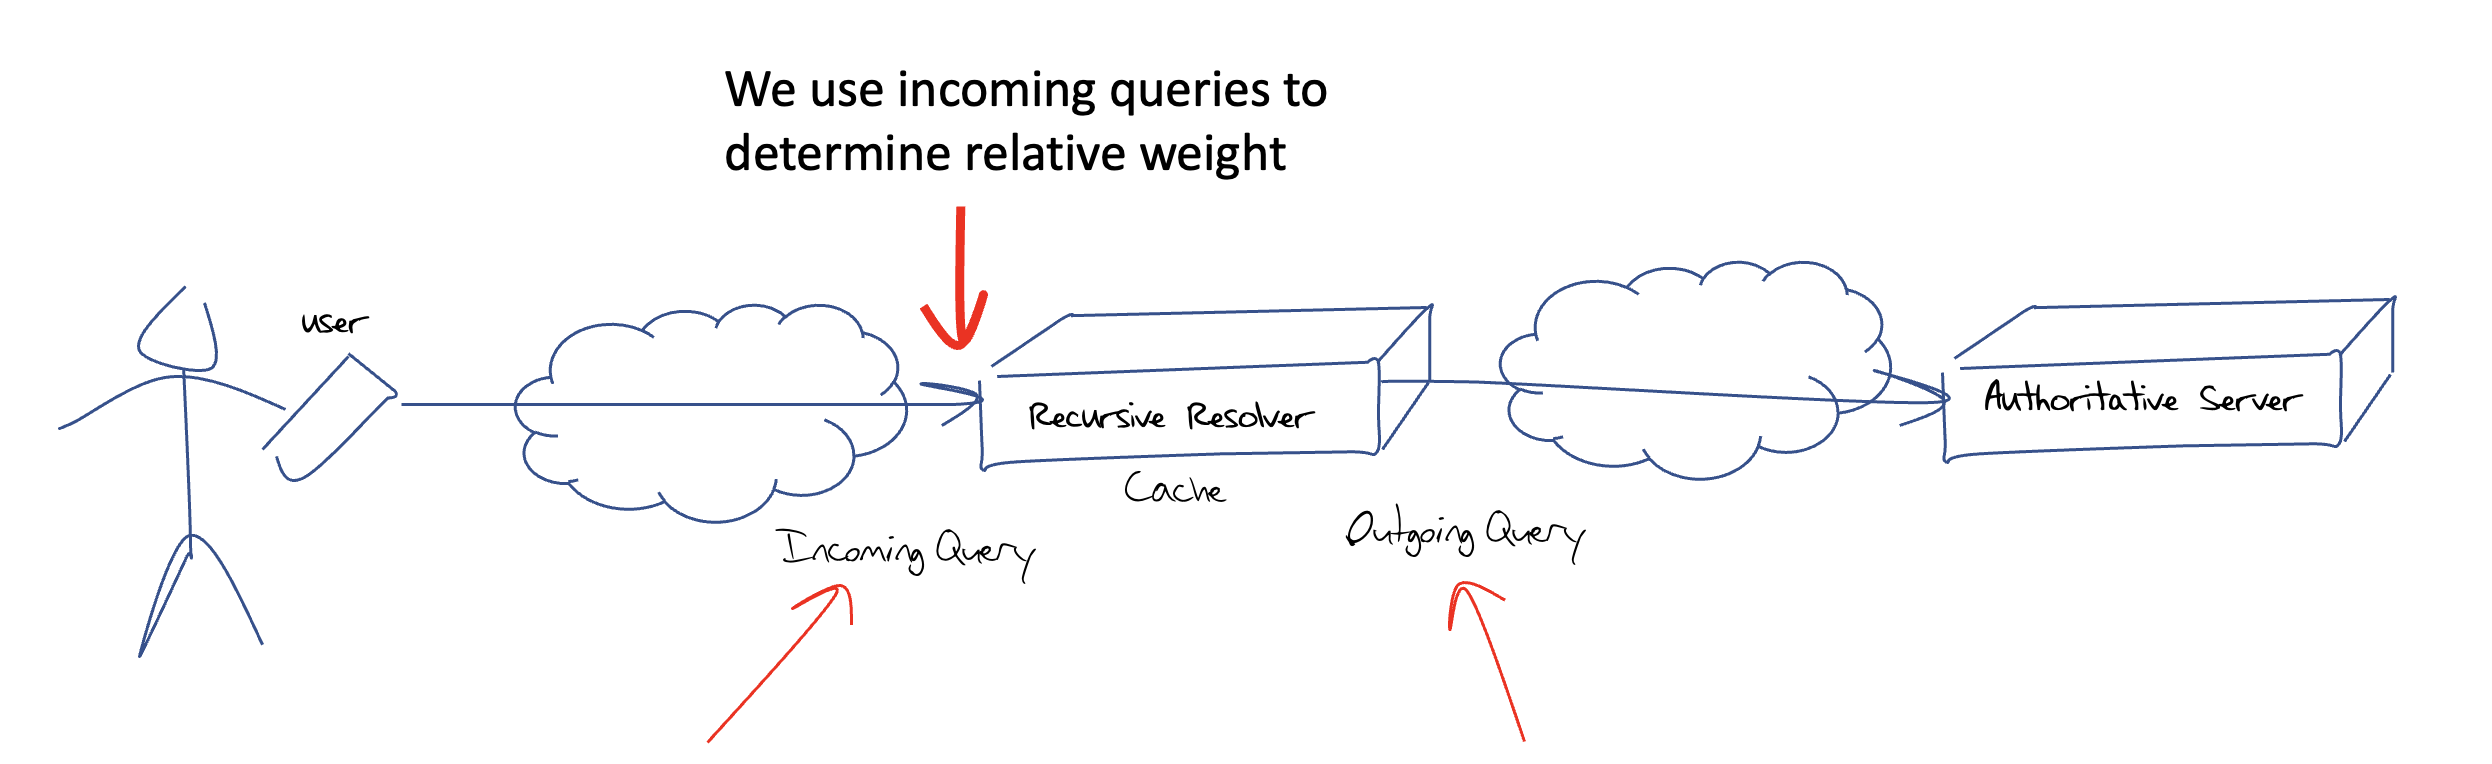 We use incoming queries to
determine relative weight
user
Recursive Resolver
Authoritative Server
Cache
Incoming Query
Outgoing Query